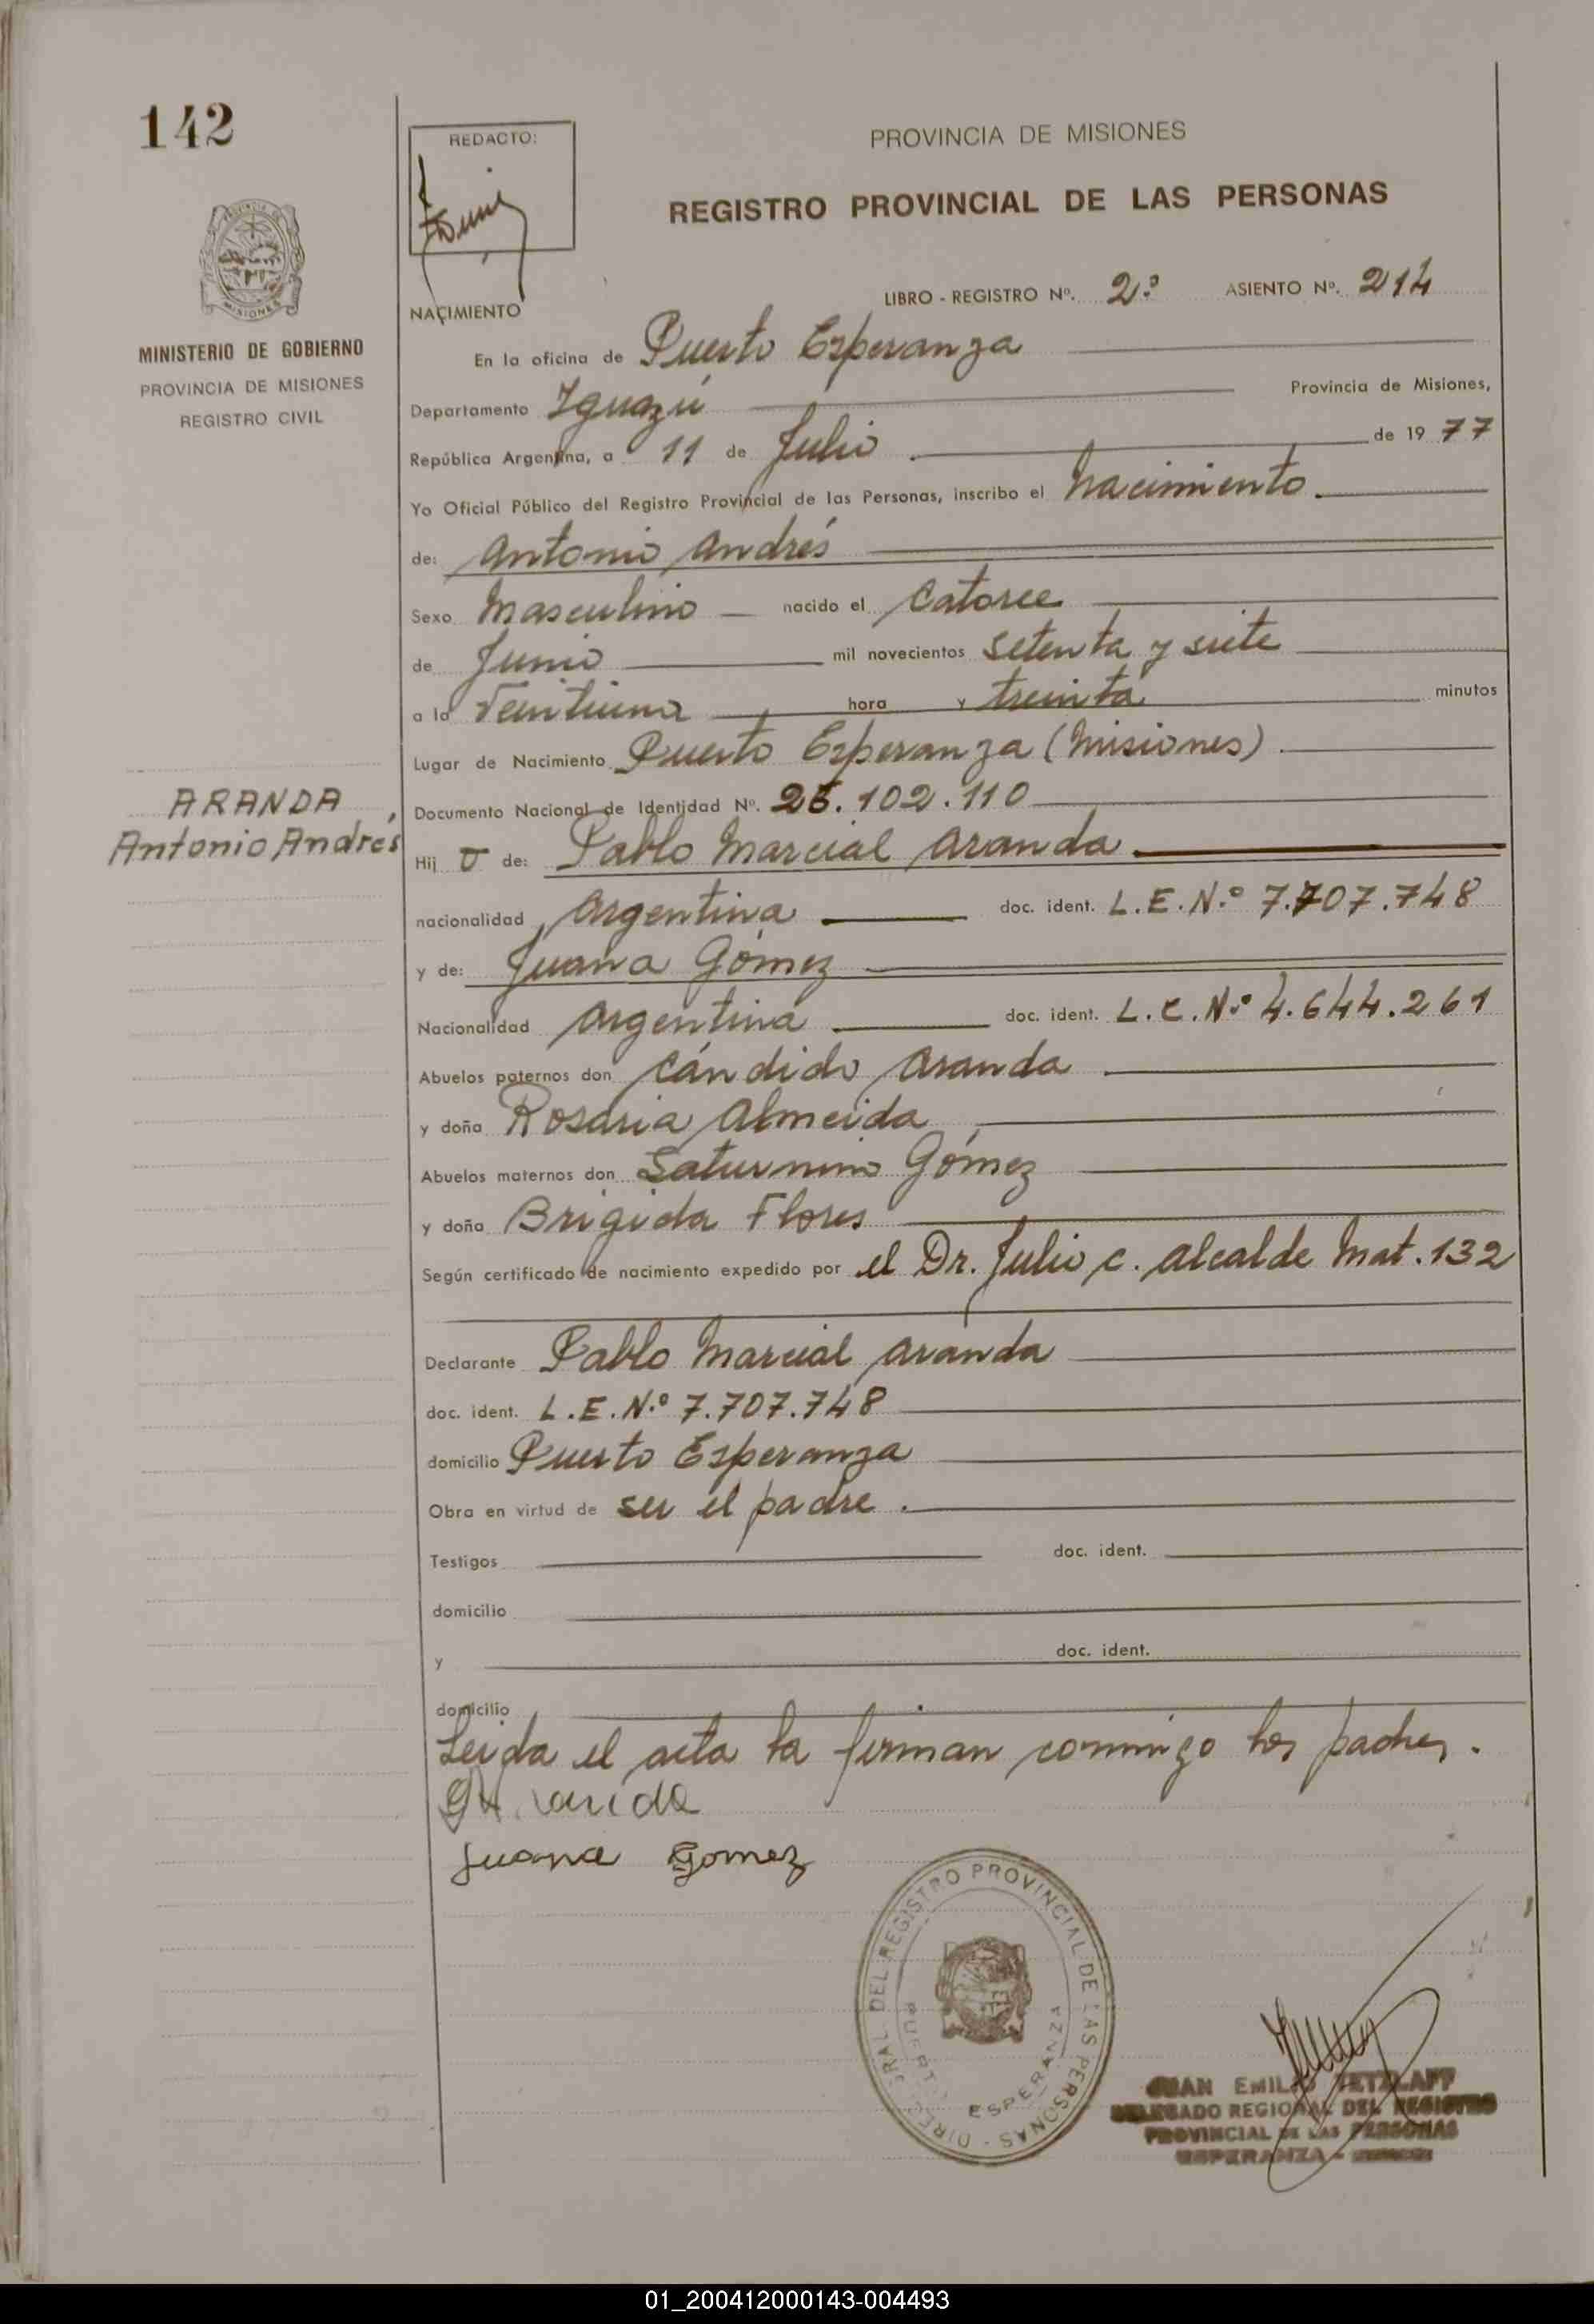 142
REDACTO:
PROVINCIA DE MISIONES
REGISTRO PROVINCIAL DE LAS PERSONAS
PROVINCIA DE MISIONES
LIBRO - REGISTRO Nº. 2º ASIENTO Nº. 214
NACIMIENTO
MINISTERIO DE GOBIERNO
PROVINCIA DE MISIONES
REGISTRO CIVIL
En la oficina de Puerto Esperanza
Departamento Iguazú Provincia de Misiones,
República Argentina, a 11 de Julio de 1977
Yo Oficial Público del Registro Provincial de las Personas, inscribo el Nacimiento.
de: Antonio Andrés
Sexo Masculino nacido el Catorce
de Junio mil novecientos setenta y siete
a la Veintiuna hora y treinta minutos
Lugar de Nacimiento Puerto Esperanza (Misiones)
ARANDA,
Antonio Andrés
Documento Nacional de Identidad Nº. 102.110
Hij o de: Pablo Marcial Aranda
nacionalidad Argentina doc. ident. L.E.N.º 7.707.748
y de: Juana Gómez
Nacionalidad Argentina doc. ident. L.C.Nº 4.644.261
Abuelos paternos don Cándido Aranda
y doña Rosaria Almeida
Abuelos maternos don Saturnino Gómez
y doña Brigida Flores
Según certificado de nacimiento expedido por el Dr. Julio C. Alcalde Mat. 132
Declarante Pablo Marcial Aranda
doc. ident. L.E.N.º 7.707.748
domicilio Puerto Esperanza
Obra en virtud de ser el padre.
Testigos doc. ident.
domicilio
y doc. ident.
domicilio
Leida el acta la firman conmigo los padres.
Juana Gomez
DIREC. GRAL. DEL REGISTRO PROVINCIAL DE LAS PERSONAS
PUERTO ESPERANZA
JUAN EMILIO TETZLAFF
DELEGADO REGIONAL DEL REGISTRO
PROVINCIAL DE LAS PERSONAS
ESPERANZA -
01_200412000143-004493